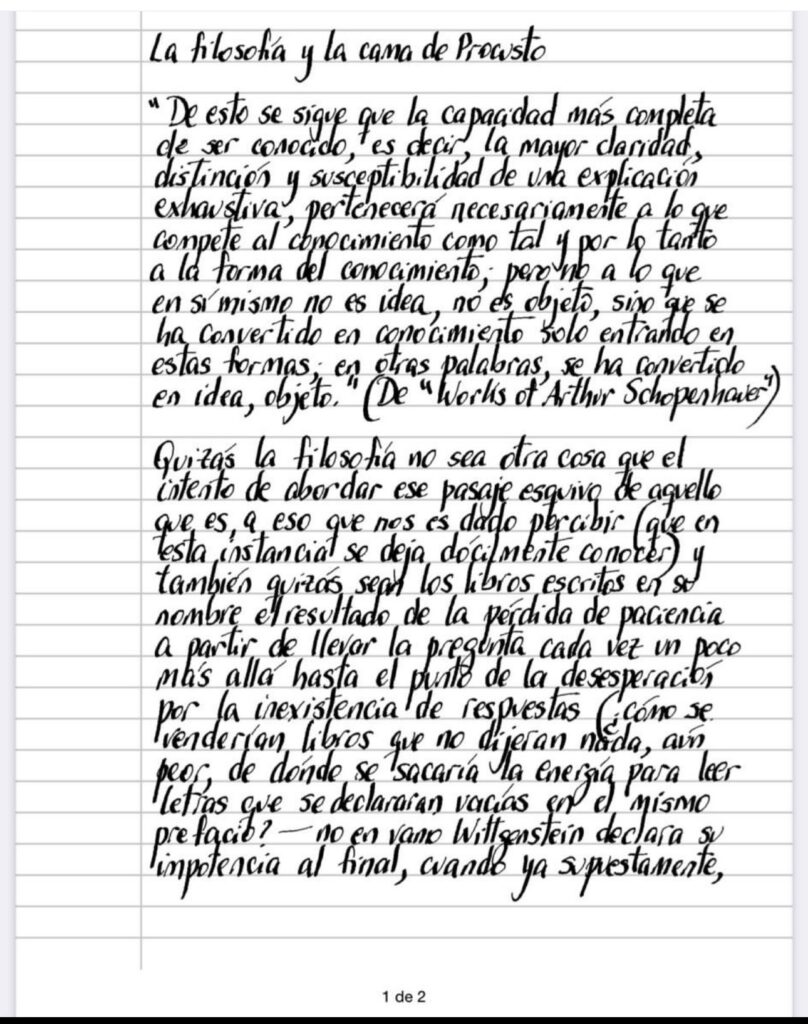 La filosofía y la cama de Procusto
"De esto se sigue que la capacidad más completa
de ser conocido, es decir, la mayor claridad,
distinción y susceptibilidad de una explicación
exhaustiva, pertenecerá necesariamente a lo que
compete al conocimiento como tal y por lo tanto
a la forma del conocimiento; pero no a lo que
en sí mismo no es idea, no es objeto, sino que se
ha convertido en conocimiento solo entrando en
estas formas; en otras palabras, se ha convertido
en idea, objeto." (De "Works of Arthur Schopenhauer")
Quizás la filosofía no sea otra cosa que el
intento de abordar ese pasaje esquivo de aquello
que es, a eso que nos es dado percibir (que en
esta instancia se deja dócilmente conocer) y
también quizás sean los libros escritos en su
nombre el resultado de la pérdida de paciencia
a partir de llevar la pregunta cada vez un poco
más allá hasta el punto de la desesperación
por la inexistencia de respuestas (¿cómo se
venderían libros que no dijeran nada, aún
peor, de dónde se sacaría la energía para leer
letras que se declararan vacías en el mismo
prefacio? — no en vano Wittgenstein declara su
impotencia al final, cuando ya supuestamente,
1 de 2